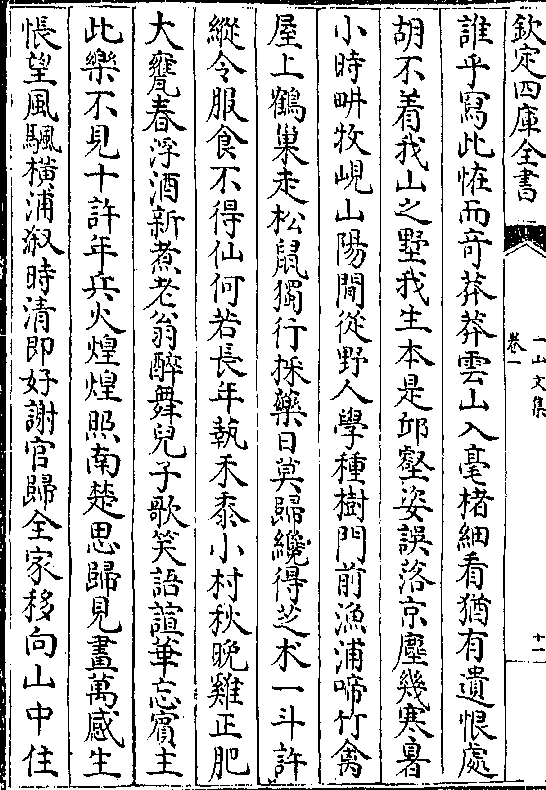 欽定四庫全書
一山文集
卷一
十二
誰乎寫此恠而竒莽莽雲山入毫楮細看猶有遺恨處
胡不着我山之墅我生本是邱壑姿誤落京塵幾寒暑
小時畊牧峴山陽閒從野人學種樹門前漁浦啼竹禽
屋上鶴巢走松鼠獨行採藥日莫歸纔得芝术一斗許
縱令服食不得仙何若長年執禾黍小村秋晚雞正肥
大甕春浮酒新煮老翁醉舞兒子歌笑語諠華忘賓主
此樂不見十許年兵火煌煌照南楚思歸見畫萬感生
悵望風颿橫浦溆時清即好謝官歸全家移向山中住